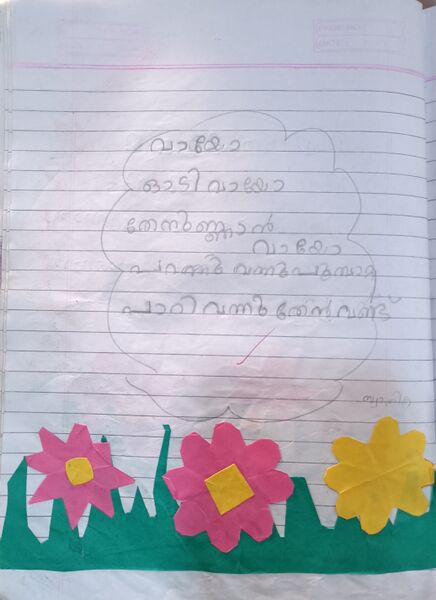 വായോ
ഓടി വായോ
തേനുണ്ണാൻ
വായോ
പറന്നു വന്നു പൂമ്പാറ്റ
പാറി വന്നു തേൻവണ്ട്